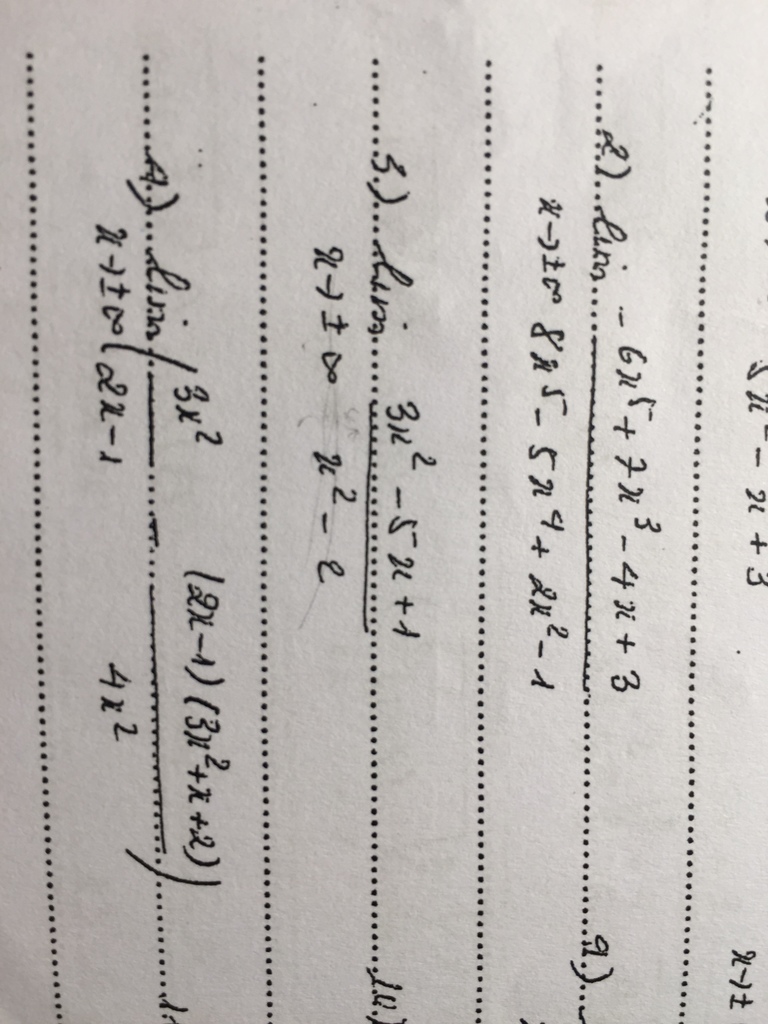 x² - x + 3
x → ±
2.) lim -6x⁵ + 7x³ - 4x + 3
x → ±∞ 8x⁵ - 5x⁴ + 2x² - 1
9.)
3.) lim 3x² - 5x + 1
x → ±∞ x² - 2
10.)
4.) lim ( 3x² - (2x-1)(3x²+x+2) )
x → ±∞ 2x-1 4x²